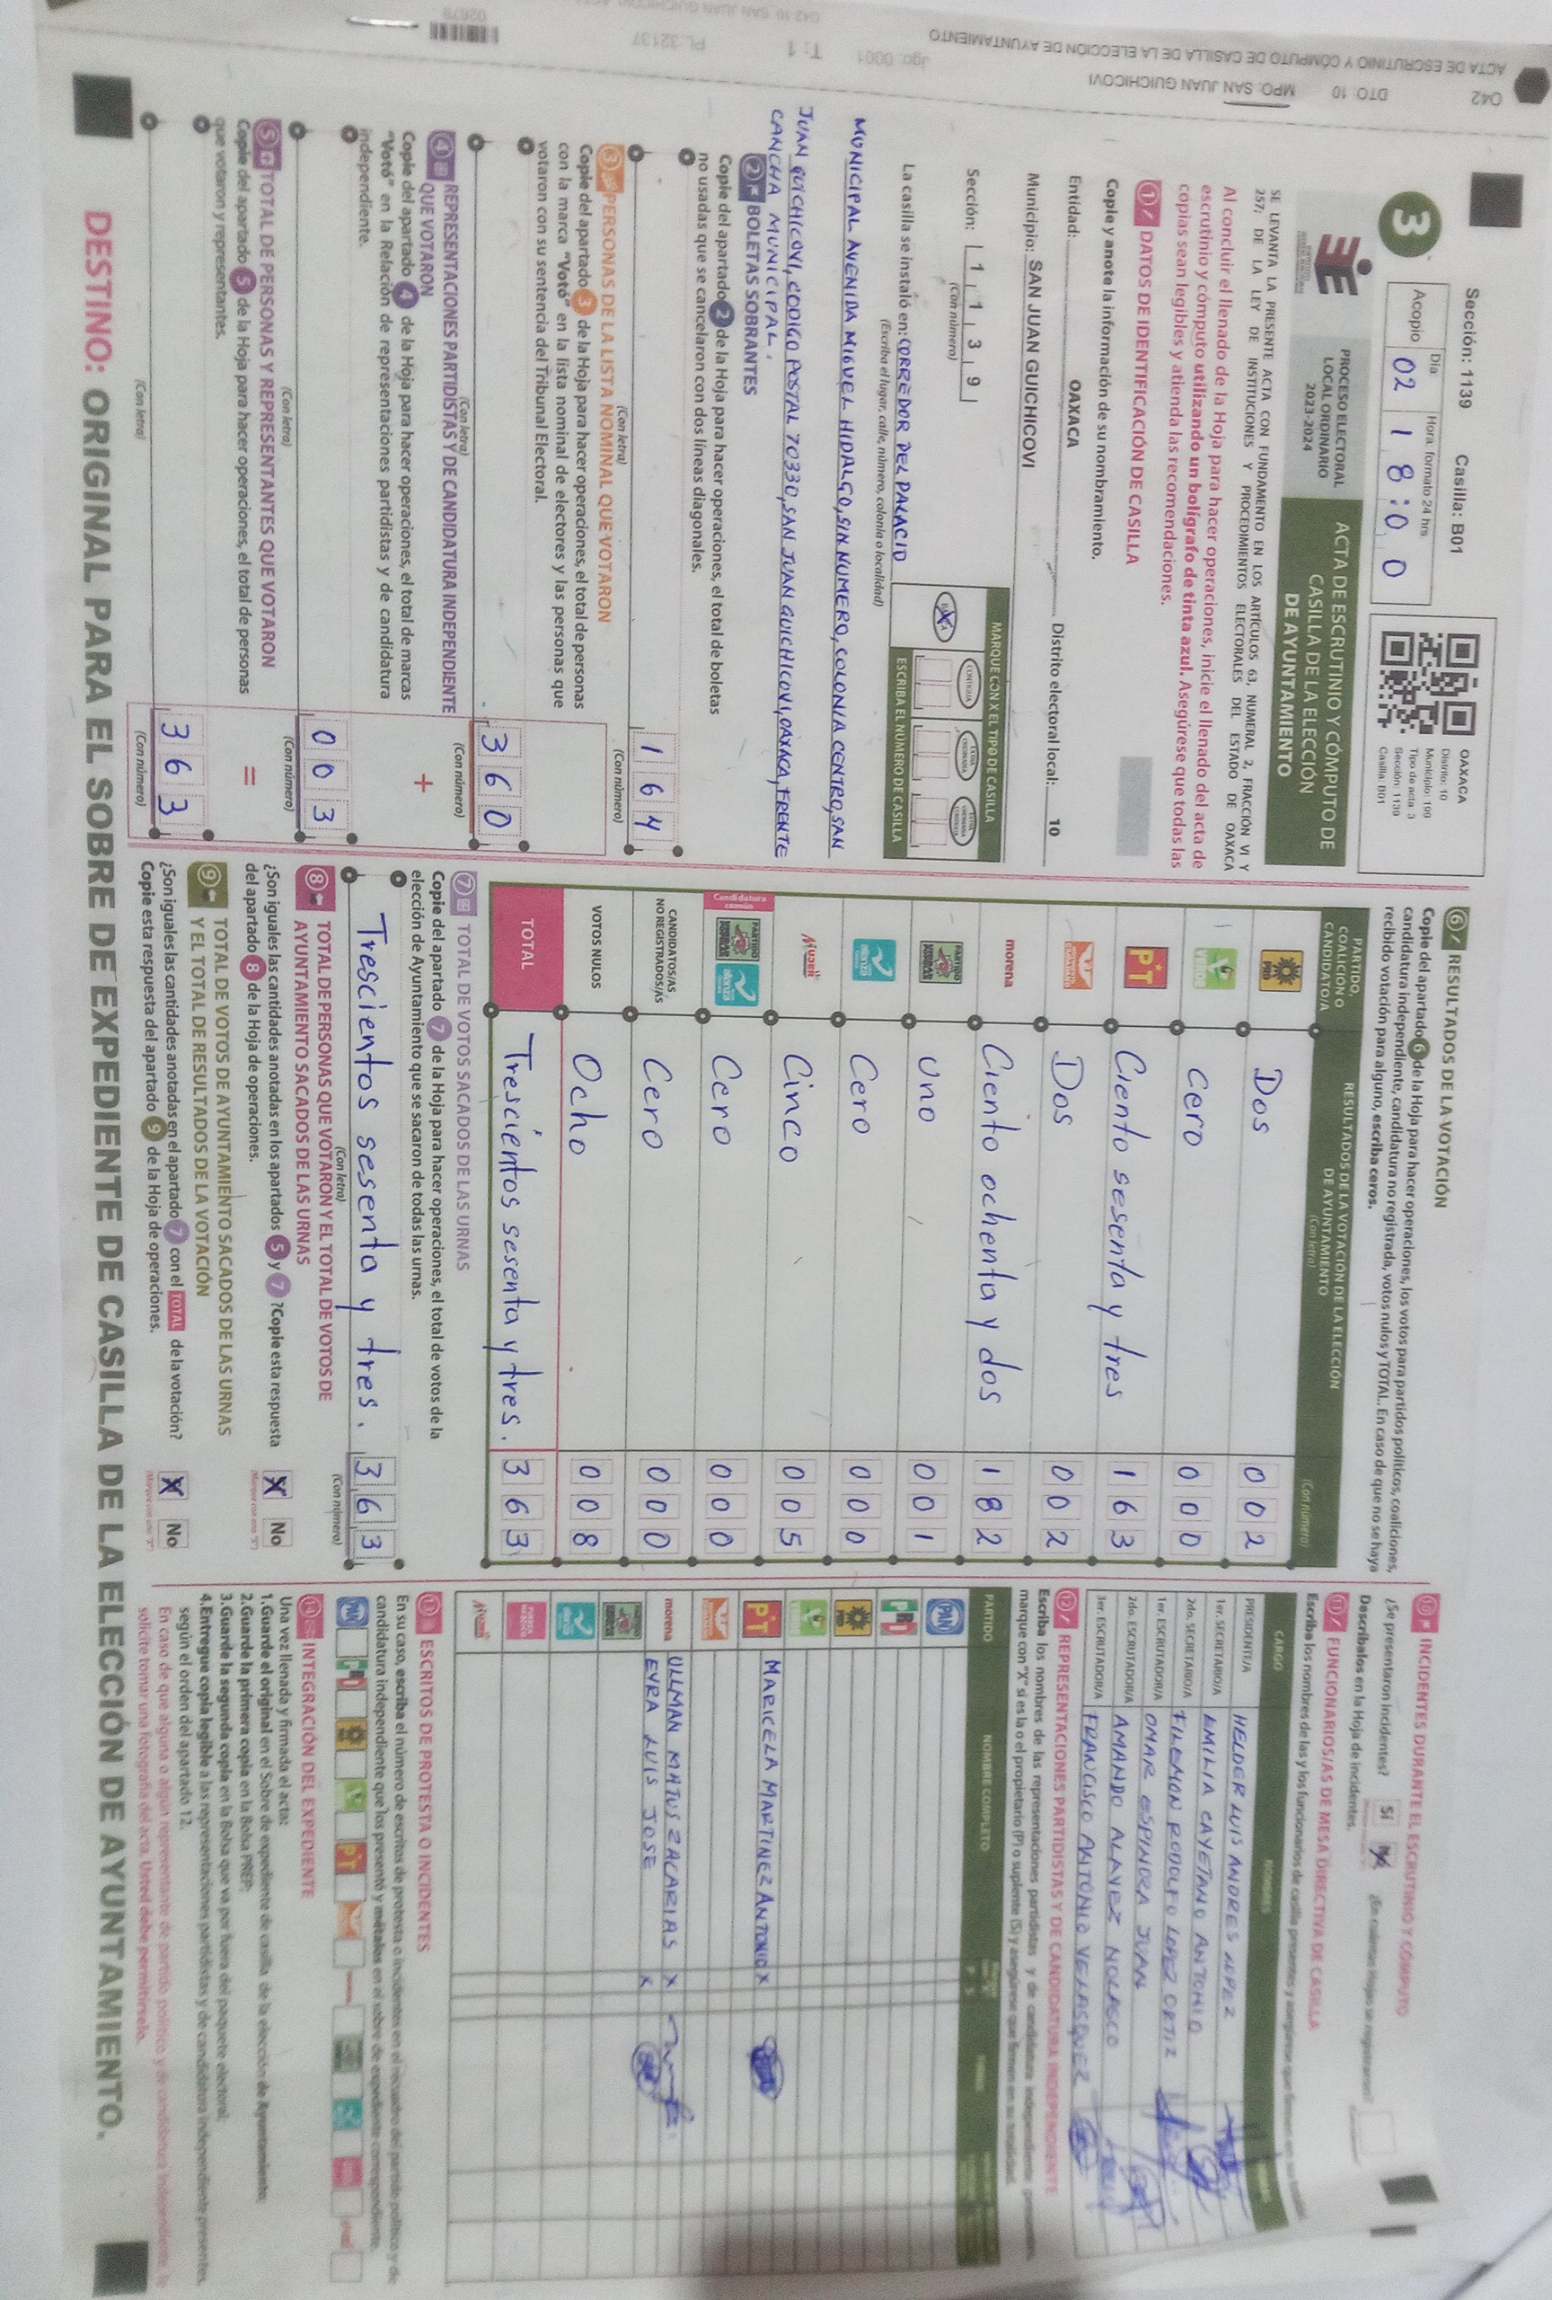 Sección: 1139 Casilla: B01
3
Día Hora: formato 24 hrs
Acopio 02 18:00
OAXACA
Distrito: 10
Municipio: 199
Tipo de acta: 3
Sección: 1139
Casilla: B01
PROCESO ELECTORAL
LOCAL ORDINARIO
2023-2024
ACTA DE ESCRUTINIO Y CÓMPUTO DE
CASILLA DE LA ELECCIÓN
DE AYUNTAMIENTO
SE LEVANTA LA PRESENTE ACTA CON FUNDAMENTO EN LOS ARTÍCULOS 63, NUMERAL 2, FRACCIÓN VI Y
257; DE LA LEY DE INSTITUCIONES Y PROCEDIMIENTOS ELECTORALES DEL ESTADO DE OAXACA
Al concluir el llenado de la Hoja para hacer operaciones, inicie el llenado del acta de
escrutinio y cómputo utilizando un bolígrafo de tinta azul. Asegúrese que todas las
copias sean legibles y atienda las recomendaciones.
1 DATOS DE IDENTIFICACIÓN DE CASILLA
Copie y anote la información de su nombramiento.
Entidad: OAXACA Distrito electoral local: 10
Municipio: SAN JUAN GUICHICOVI
Sección: 1 1 3 9
(Con número)
MARQUE CON X EL TIPO DE CASILLA
ESCRIBA EL NÚMERO DE CASILLA
La casilla se instaló en: CORREDOR DEL PALACIO
(Escriba el lugar, calle, número, colonia o localidad)
MUNICIPAL AVENIDA MIGUEL HIDALGO, SIN NUMERO, COLONIA CENTRO, SAN
JUAN GUICHICOVI, CODIGO POSTAL 70330, SAN JUAN GUICHICOVI, OAXACA, FRENTE
CANCHA MUNICIPAL.
2 BOLETAS SOBRANTES
Copie del apartado 2 de la Hoja para hacer operaciones, el total de boletas
no usadas que se cancelaron con dos líneas diagonales.
164
(Con letra) (Con número)
3 PERSONAS DE LA LISTA NOMINAL QUE VOTARON
Copie del apartado 3 de la Hoja para hacer operaciones, el total de personas
con la marca "Votó" en la lista nominal de electores y las personas que
votaron con su sentencia del Tribunal Electoral.
360
(Con letra) (Con número)
4 REPRESENTACIONES PARTIDISTAS Y DE CANDIDATURA INDEPENDIENTE
QUE VOTARON
Copie del apartado 4 de la Hoja para hacer operaciones, el total de marcas
"Votó" en la Relación de representaciones partidistas y de candidatura
independiente.
+
003
(Con letra) (Con número)
5 TOTAL DE PERSONAS Y REPRESENTANTES QUE VOTARON
Copie del apartado 5 de la Hoja para hacer operaciones, el total de personas
que votaron y representantes.
=
363
(Con letra) (Con número)
6 RESULTADOS DE LA VOTACIÓN
Copie del apartado 6 de la Hoja para hacer operaciones, los votos para partidos políticos, coaliciones,
candidatura independiente, candidatura no registrada, votos nulos y TOTAL. En caso de que no se haya
recibido votación para alguno, escriba ceros.
PARTIDO,
COALICIÓN O
CANDIDATO/A
RESULTADOS DE LA VOTACIÓN DE LA ELECCIÓN
DE AYUNTAMIENTO
(Con letra) (Con número)
PRD Dos 002
VERDE Cero 000
PT Ciento sesenta y tres 163
Dos 002
morena Ciento ochenta y dos 182
Uno 001
Cero 000
Mujer Cinco 005
Candidatura común Cero 000
CANDIDATOS/AS
NO REGISTRADOS/AS Cero 000
VOTOS NULOS Ocho 008
TOTAL Trescientos sesenta y tres. 363
7 TOTAL DE VOTOS SACADOS DE LAS URNAS
Copie del apartado 7 de la Hoja para hacer operaciones, el total de votos de la
elección de Ayuntamiento que se sacaron de todas las urnas.
Trescientos sesenta y tres. 363
(Con letra) (Con número)
8 TOTAL DE PERSONAS QUE VOTARON Y EL TOTAL DE VOTOS DE
AYUNTAMIENTO SACADOS DE LAS URNAS
¿Son iguales las cantidades anotadas en los apartados 5 y 7 ? Copie esta respuesta
del apartado 8 de la Hoja de operaciones. X No
9 TOTAL DE VOTOS DE AYUNTAMIENTO SACADOS DE LAS URNAS
Y EL TOTAL DE RESULTADOS DE LA VOTACIÓN
¿Son iguales las cantidades anotadas en el apartado 7 con el TOTAL de la votación?
Copie esta respuesta del apartado 9 de la Hoja de operaciones. X No
10 INCIDENTES DURANTE EL ESCRUTINIO Y CÓMPUTO
¿Se presentaron incidentes? Sí
Descríbalos en la Hoja de incidentes.
11 FUNCIONARIOS/AS DE MESA DIRECTIVA DE CASILLA
CARGO NOMBRES
PRESIDENTE/A HELDER LUIS ANDRES LOPEZ
1er. SECRETARIO/A EMILIA CAYETANO ANTONIO
2do. SECRETARIO/A FILEMON RODOLFO LOPEZ ORTIZ
1er. ESCRUTADOR/A OMAR ESPINDRA JUAN
2do. ESCRUTADOR/A AMANDO ALAVEZ NOLASCO
3er. ESCRUTADOR/A FRANCISCO ANTONIO VELASQUEZ
12 REPRESENTACIONES PARTIDISTAS Y DE CANDIDATURA INDEPENDIENTE
Escriba los nombres de las representaciones partidistas y de candidatura independiente
marque con "X" si es la o el propietario (P) o suplente (S) y asegúrese que firmen en su totalidad.
PARTIDO NOMBRE COMPLETO
PAN
PRI
PRD
VERDE
PT MARICELA MARTINEZ ANTONIO X
morena ULLMAN MATUS ZACARIAS X
EYRA LUIS JOSE X
13 ESCRITOS DE PROTESTA O INCIDENTES
En su caso, escriba el número de escritos de protesta o incidentes en el recuadro del partido político y de
candidatura independiente que los presentó y métalos en el sobre de expediente correspondiente.
14 INTEGRACIÓN DEL EXPEDIENTE
Una vez llenada y firmada el acta:
1.Guarde el original en el Sobre de expediente de casilla de la elección de Ayuntamiento;
2.Guarde la primera copia en la Bolsa PREP;
3.Guarde la segunda copia en la Bolsa que va por fuera del paquete electoral;
4.Entregue copia legible a las representaciones partidistas y de candidatura independiente presentes,
según el orden del apartado 12.
En caso de que alguna o algún representante de partido político y de candidatura independiente, le
solicite tomar una fotografía del acta. Usted debe permitírselo.
DESTINO: ORIGINAL PARA EL SOBRE DE EXPEDIENTE DE CASILLA DE LA ELECCIÓN DE AYUNTAMIENTO.
ACTA DE ESCRUTINIO Y CÓMPUTO DE CASILLA DE LA ELECCIÓN DE AYUNTAMIENTO
042 DTO. 10 MPO. SAN JUAN GUICHICOVI
Jgo: 0001 T: 1 PL 32137
02678